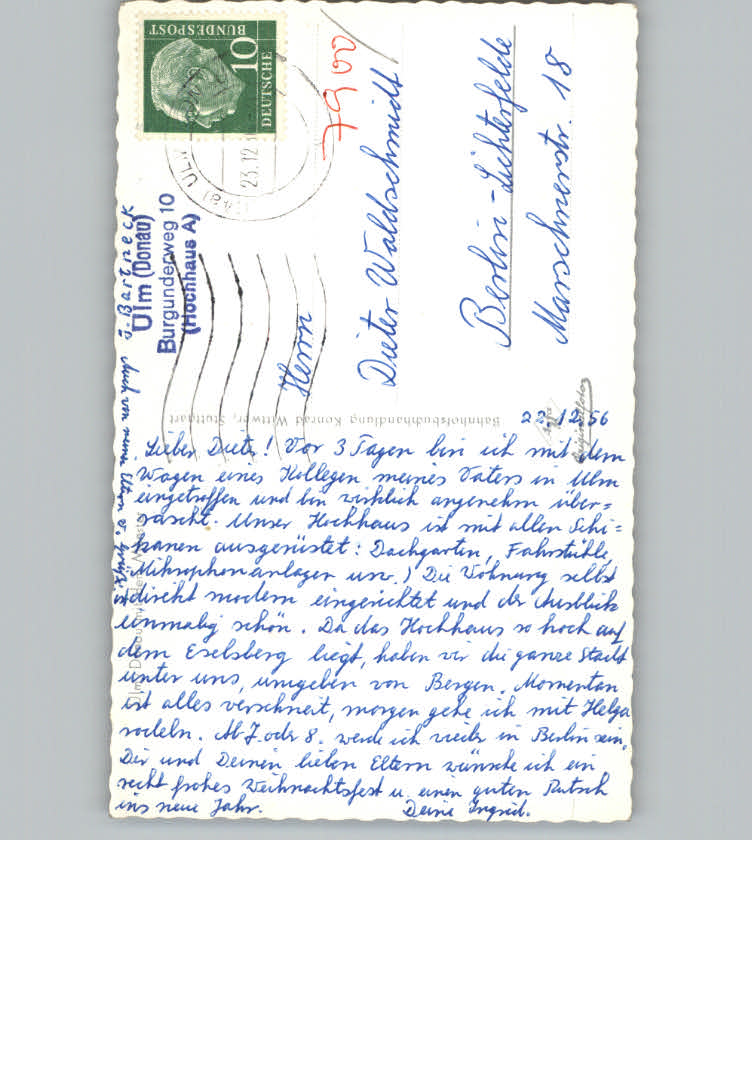 DEUTSCHE
BUNDESPOST
10
23.12.
7900
ü. Bartneck
Ulm (Donau)
Burgunderweg 10
(Hochhaus A)
Herrn
Dieter Waldschmidt
Berlin-Lichterfelde
Marschnerstr. 18
Bahnhofsbuchhandlung Konrad Wittwer, Stuttgart
22.12.56
Lieber Dieter! Vor 3 Tagen bin ich mit dem
Wagen eines Kollegen meines Vaters in Ulm
eingetroffen und bin wirklich angenehm über=
rascht. Unser Hochhaus ist mit allen Schi=
kanen ausgerüstet: Dachgarten, Fahrstühle,
Mikrophonanlagen usw.) Die Wohnung selbst
ist direkt modern eingerichtet und der Ausblick
einmalig schön. Da das Hochhaus so hoch auf
dem Eselsberg liegt, haben wir die ganze Stadt
unter uns, umgeben von Bergen. Momentan
ist alles verschneit, morgen gehe ich mit Helga
rodeln. Ab 7. oder 8. werde ich wieder in Berlin sein.
Dir und Deinen lieben Eltern wünsche ich ein
recht frohes Weihnachtsfest u. einen guten Rutsch
ins neue Jahr.
Deine Ingrid.
Auch von meinen Eltern